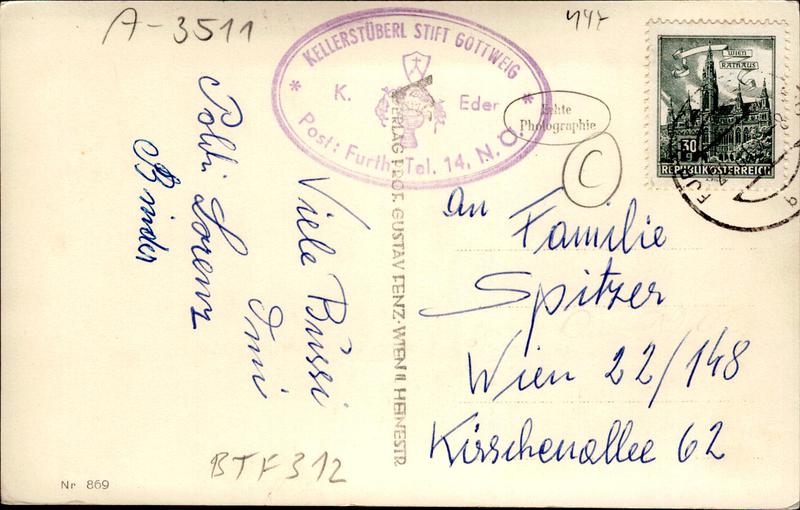 A-3511
444
KELLERSTÜBERL STIFT GÖTTWEIG
K. Eder
Post: Furth, Tel. 14, N. Ö.
Echte
Photographie
C
WIEN
RATHAUS
30
REPUBLIK ÖSTERREICH
Viele Bussi
Omi
Poldi Lorenz
Binder
VERLAG PROF. GUSTAV FENZ·WIEN II. HEINESTR.
An
Familie
Spitzer
Wien 22/148
Kirschenallee 62
BTF 312
Nr 869